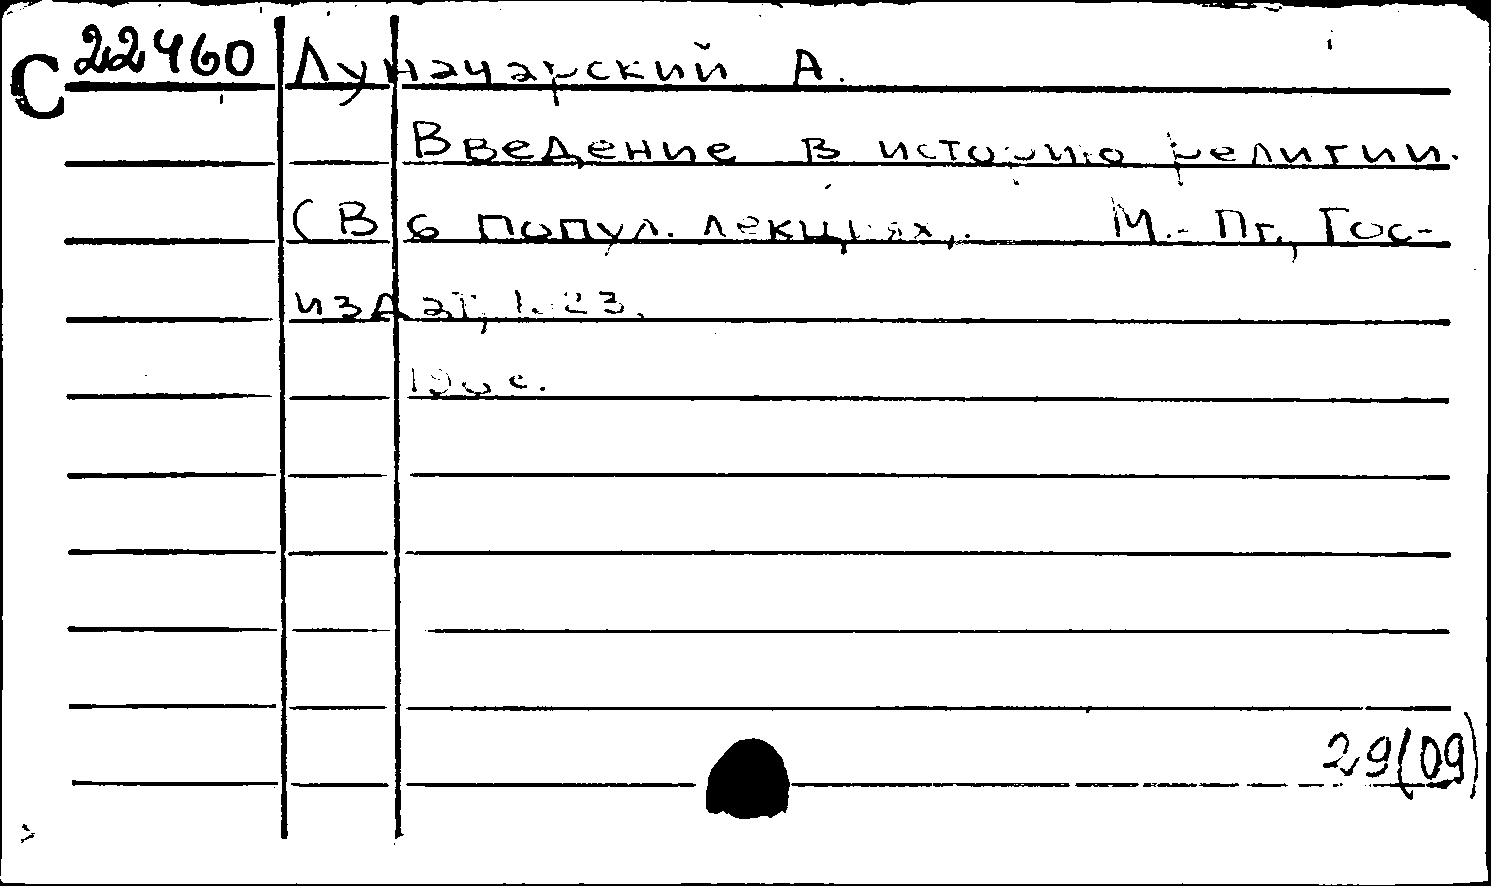 С 22460 Луначарский А.
Введение в историю религии.
(В 6 попул. лекциях). М.-Пг., Гос-
издат, 1923.
с.
29(09)